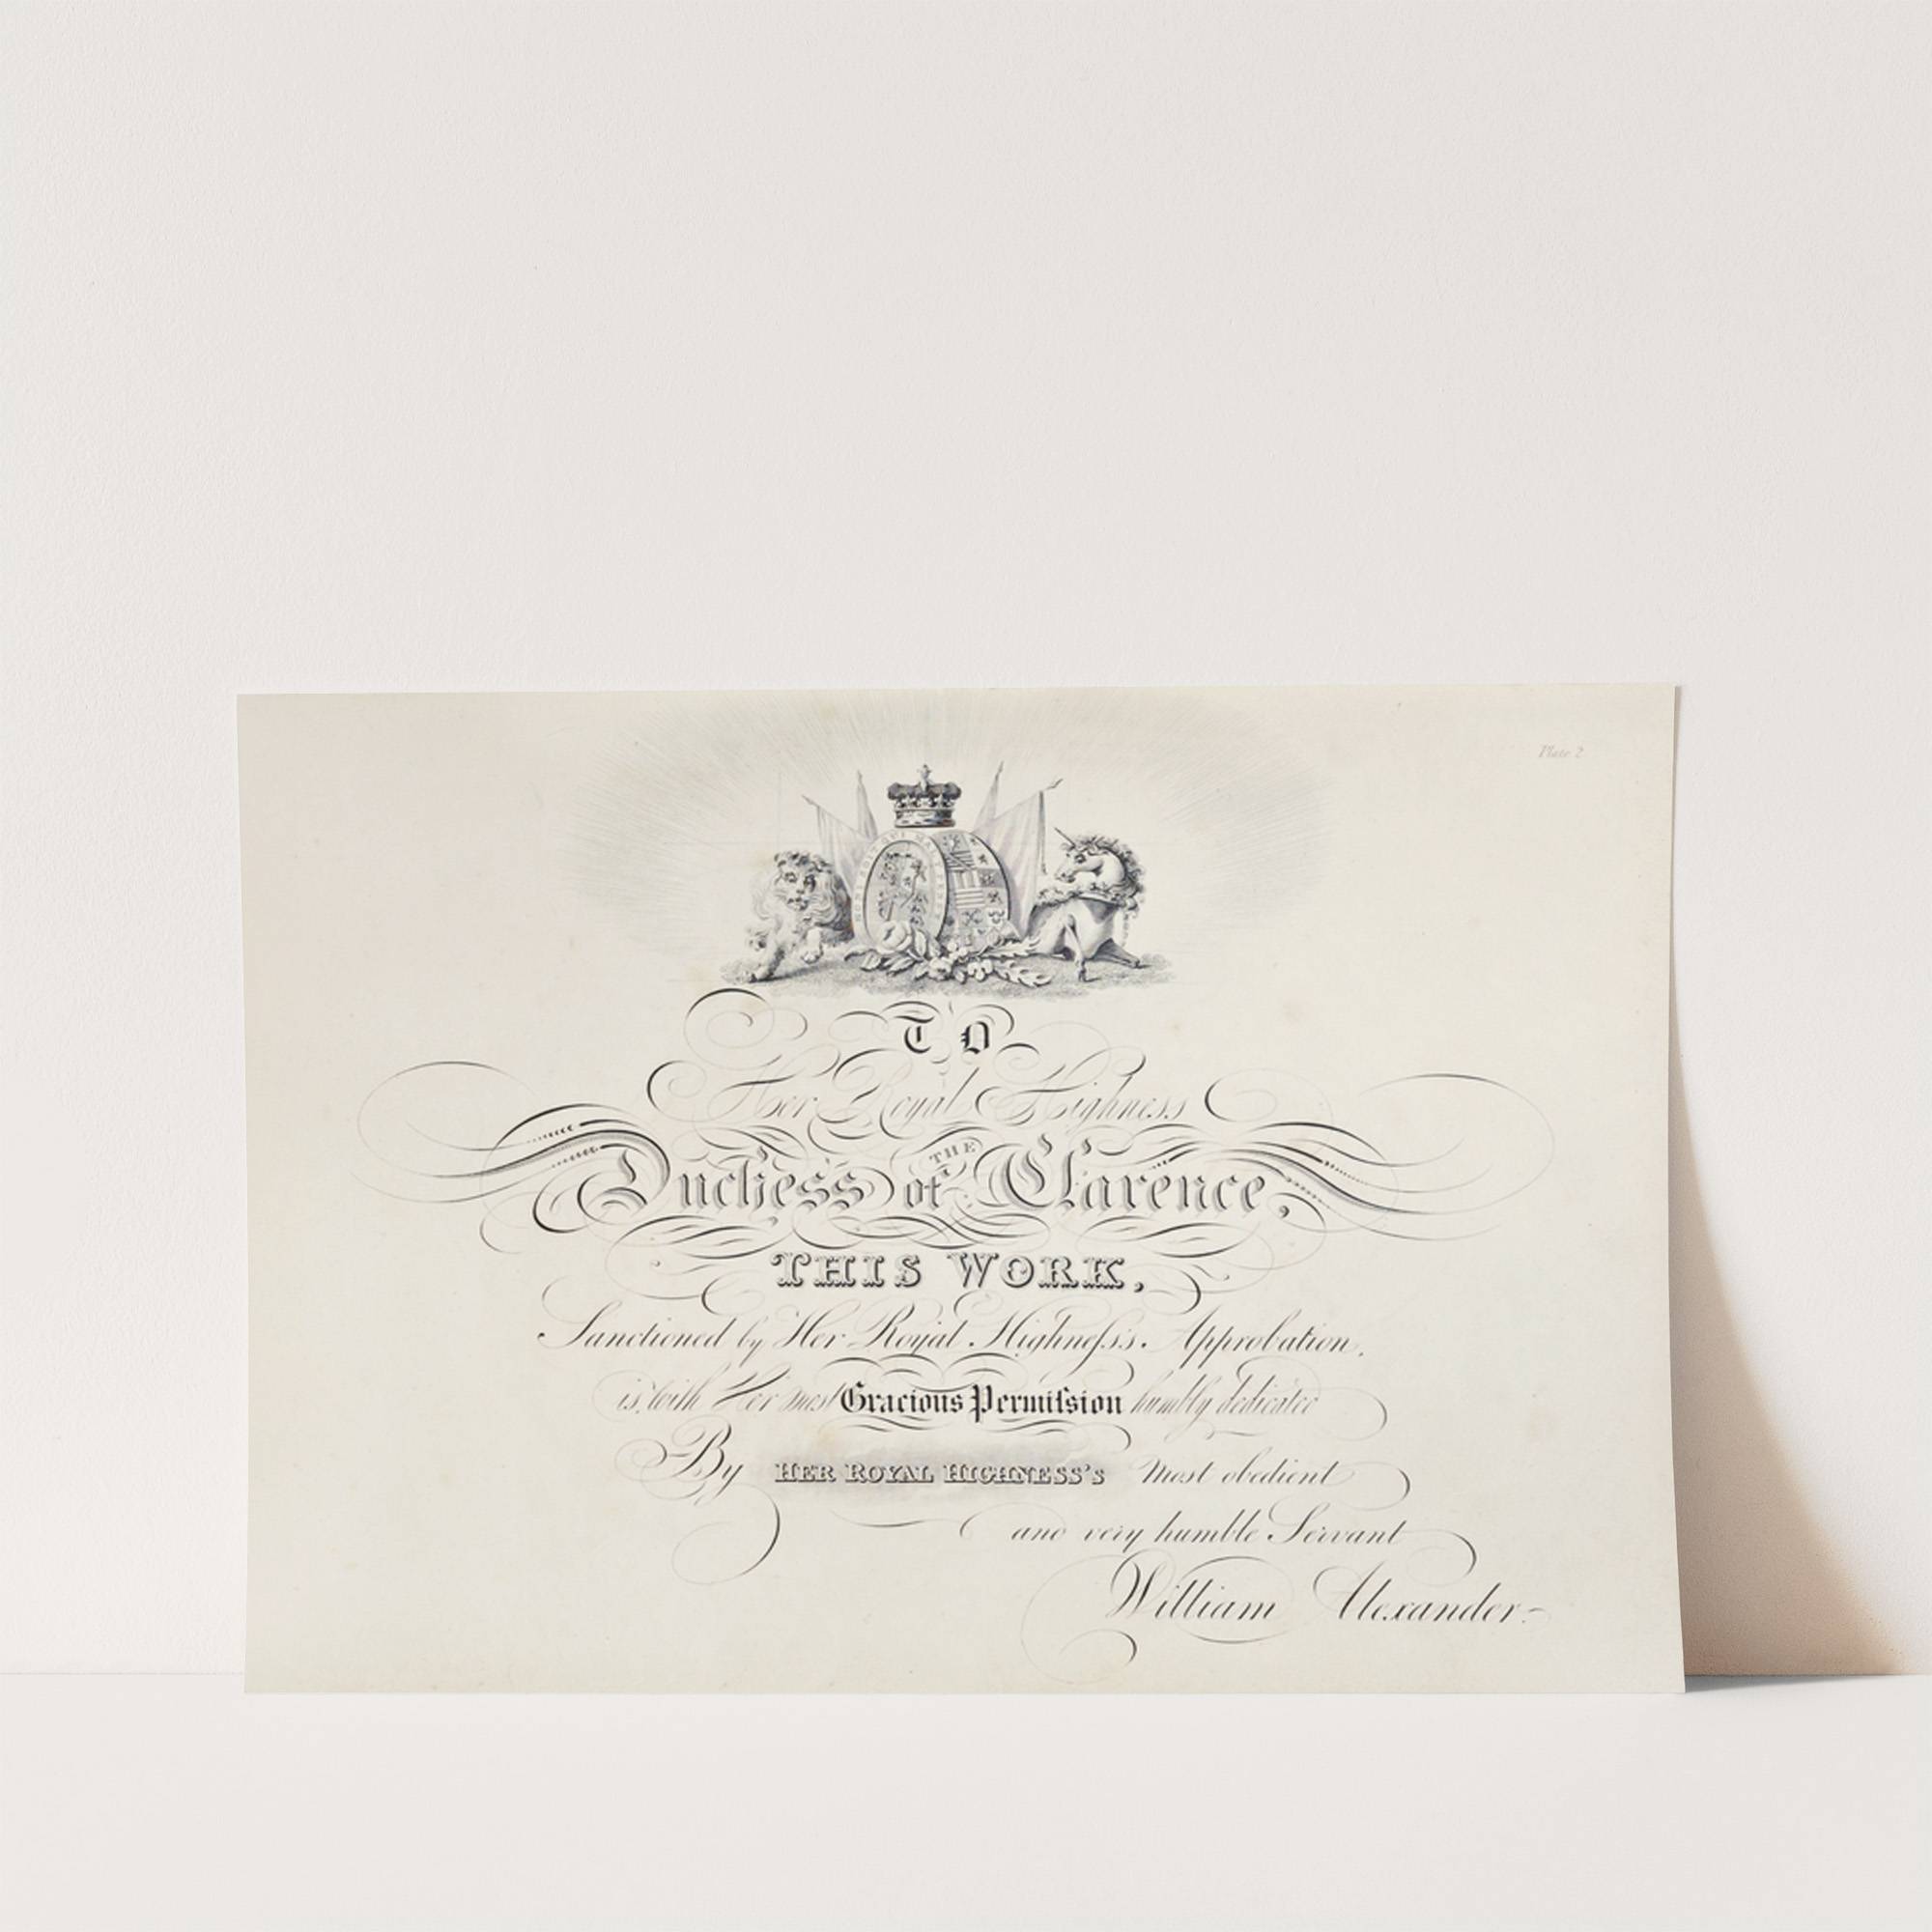 Plate 2
TO
Her Royal Highness
THE
Duchess of Clarence,
THIS WORK,
Sanctioned by Her Royal Highneſs's Approbation,
is, with Her most Gracious Permiſsion humbly dedicated
By HER ROYAL HIGHNESS'S Most obedient
and very humble Servant
William Alexander